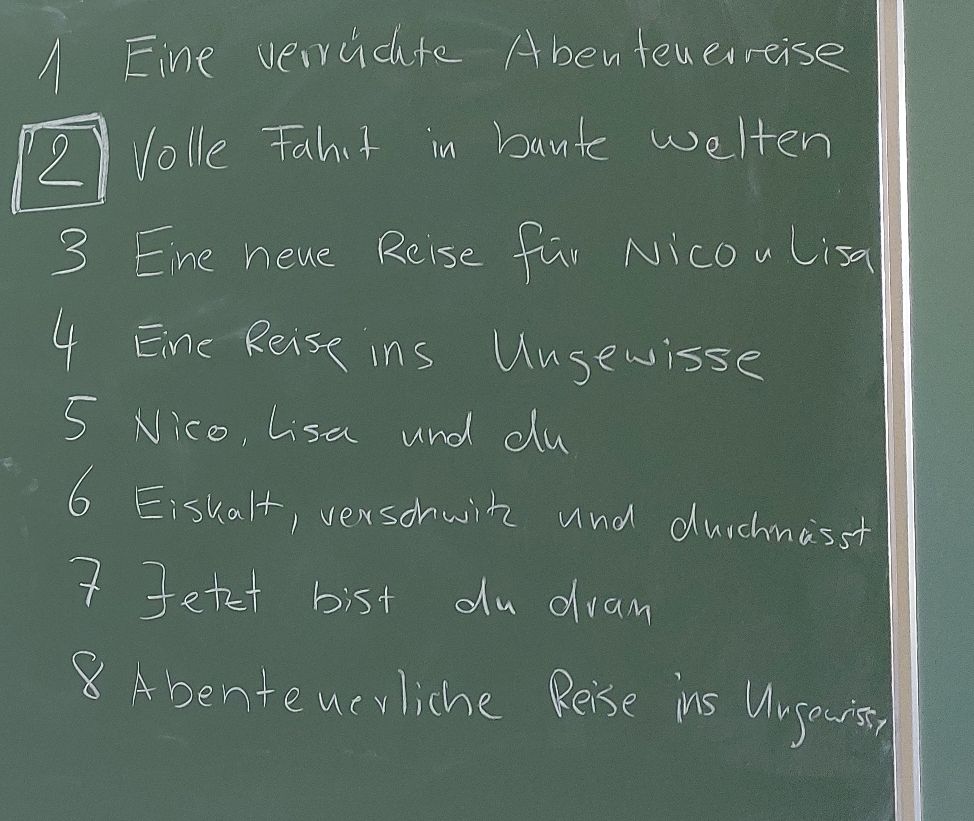 1 Eine verrückte Abenteuerreise
2 Volle Fahrt in bunte welten
3 Eine neue Reise für Nico u Lisa
4 Eine Reise ins Ungewisse
5 Nico, Lisa und du
6 Eiskalt, verschwitz und durchnässt
7 Jetzt bist du dran
8 Abenteuerliche Reise ins Ungewisse